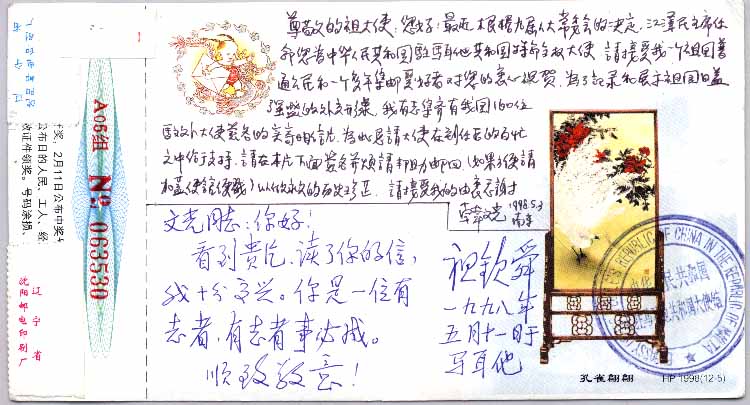 尊敬的祖大使：您好！最近根据九届人大常委会的决定，江泽民主席任
命您为中华人民共和国驻马耳他共和国特命全权大使，请接受我一个祖国普
通公民和一个多年集邮爱好者对您的衷心祝贺。为了记录和展示祖国日益
强盛的外交形象，我有志集齐有我国160位
驻外大使签名的实寄明信片，为此恳请大使在到任后的百忙
之中给予支持，请在本片下面签名并烦请帮助邮回（如果方便请
加盖使馆便戳）以作永久的历史珍品。请接受我的由衷不谢忱
1998.5.3
南京
文光同志：你好！
看到贵片、读了你的信，
我十分高兴。你是一位有
志者，有志者事必成。
顺致敬意！
祖钦舜
一九九八年
五月十一日于
马耳他
孔雀翩翩
HP 1998(12-5)
PEOPLE'S REPUBLIC OF CHINA IN THE REPUBLIC OF MALTA
EMBASSY
A05组
No 063530
2月11日公布中奖
公布日的人民、工人、经
改证件领奖。号码涂损、
辽宁省
沈阳邮电印刷厂